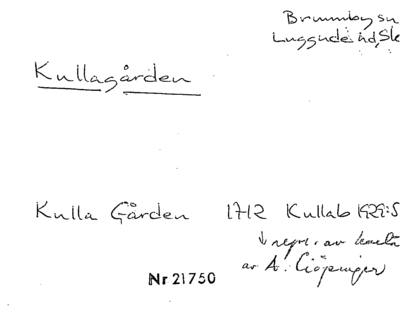 Brunnby sn
Luggude hd, Sk
Kullagården
Kulla Gården 1712 Kullab 1929:5
↓ repr. av
av A. Ciöpinger
Nr 21750